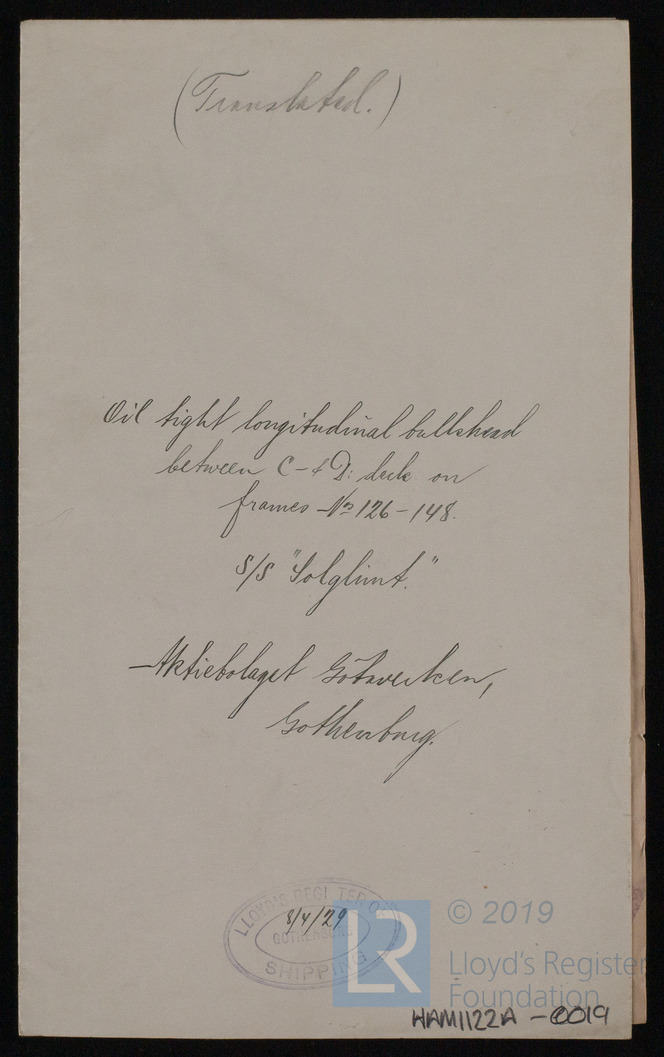 (Translated.)
Oil tight longitudinal bulkhead
between C- & D: deck on
frames No 126-148.
S/S "Solglimt."
Aktiebolaget Götaverken,
Gothenburg.
LLOYD'S REGISTER OF
8/4/29
GOTHENBURG
SHIPPING
LR
© 2019
Lloyd's Register
Foundation
HAM1122A - 0019